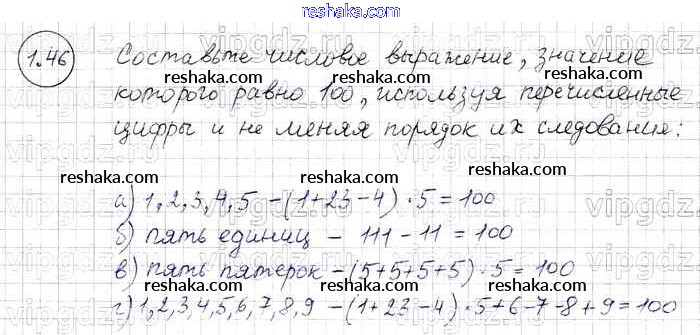 reshaka.com
1.46 Составьте числовое выражение, значение
reshaka.com reshaka.com reshaka.com
которого равно 100, используя перечисленные
цифры и не меняя порядок их следования:
reshaka.com
reshaka.com reshaka.com
а) 1,2,3,4,5 – (1+23–4)·5=100
б) пять единиц – 111–11=100
reshaka.com
в) пять пятерок – (5+5+5+5)·5=100
reshaka.com reshaka.com reshaka.com
г) 1,2,3,4,5,6,7,8,9 – (1+23–4)·5+6–7–8+9=100
reshaka.com